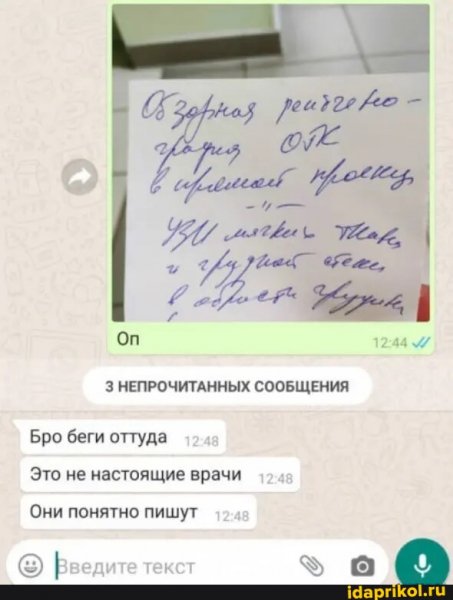 Обзорная рентгено-
графия ОГК
в прямой проекц
-"-
УЗИ мягких ткан
и грудной стенки
в области грудин
Оп
12:44
3 НЕПРОЧИТАННЫХ СООБЩЕНИЯ
Бро беги оттуда 12:48
Это не настоящие врачи 12:48
Они понятно пишут 12:48
Введите текст
idaprikol.ru